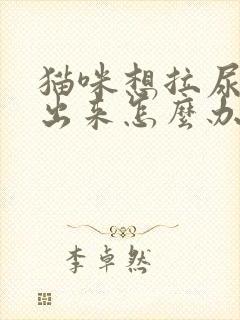 猫咪想拉尿
出来怎麽办
李卓然